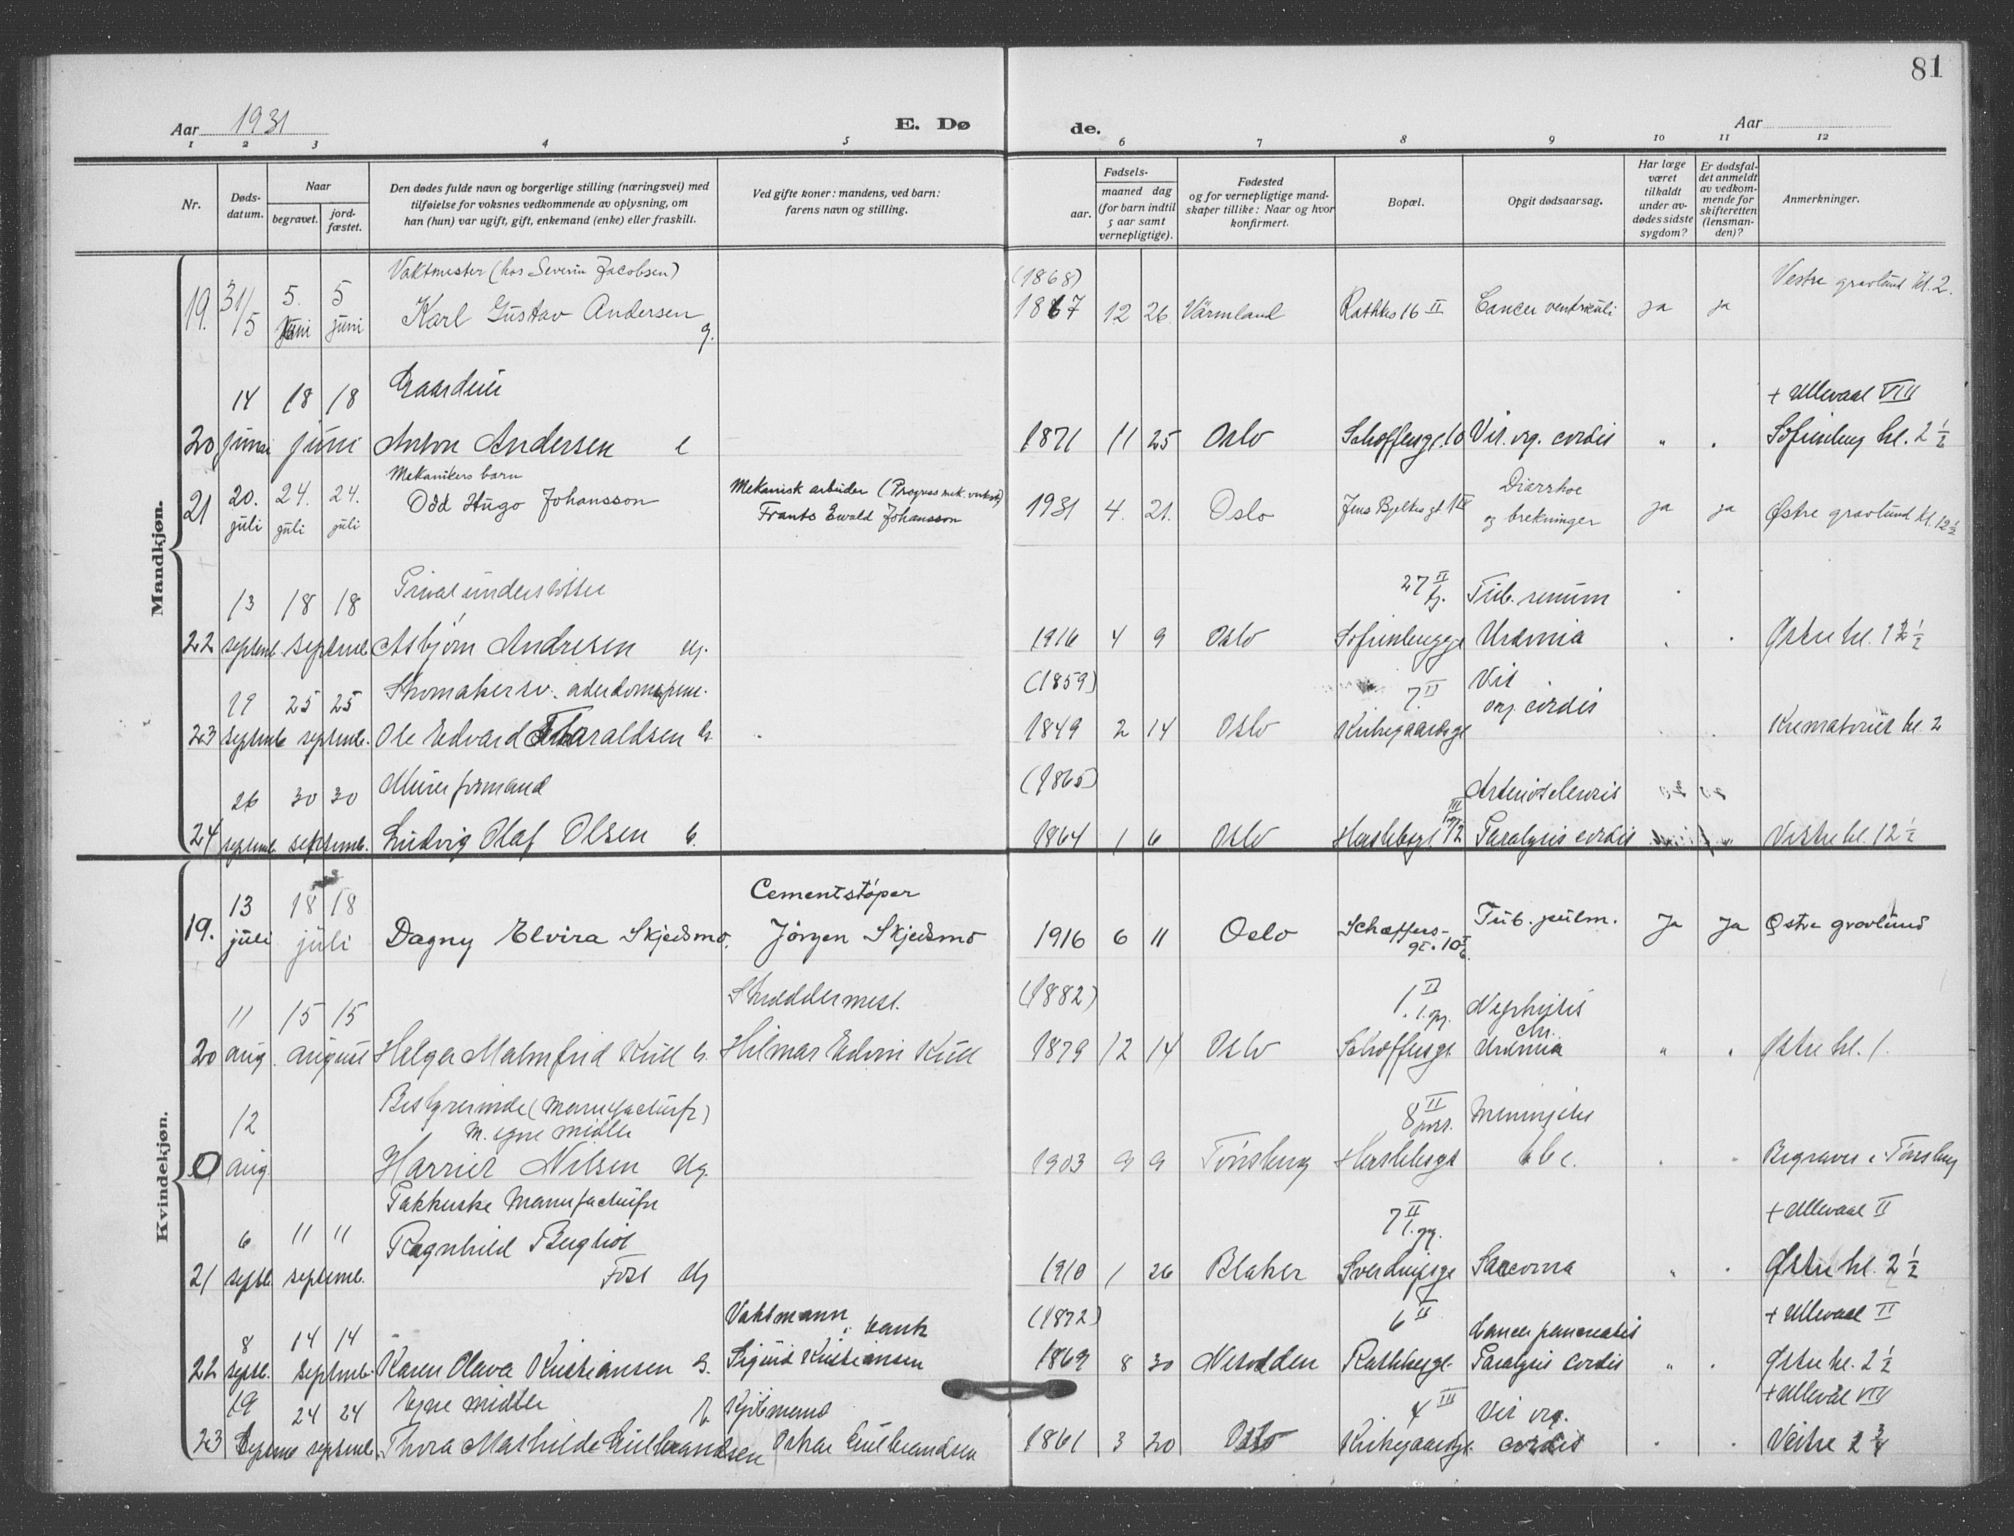 81
Aar 1931 E. Døde. Aar
1 2 3 4 5 6 7 8 9 10 11 12
Nr.
Døds-datum.
Naar
begravet.
jord-fæstet.
Den dødes fulde navn og borgerlige stilling (næringsvei) med
tilføielse for voksnes vedkommende av oplysning, om
han (hun) var ugift, gift, enkemand (enke) eller fraskilt.
Ved gifte koner: mandens, ved barn:
farens navn og stilling.
Fødsels-
aar.
maaned dag
(for barn indtil
5 aar samt
vernepligtige).
Fødested
og for vernepligtige mand-
skaper tillike: Naar og hvor
konfirmert.
Bopæl.
Opgit dødsaarsag.
Har læge
været
tilkaldt
under av-
dødes sidste
sygdom?
Er dødsfal-
det anmeldt
av vedkom-
mende for
skifteretten
(lensman-
den)?
Anmerkninger.
Mandkjøn.
Vaktmester (hos Severin Jacobsen) (1868) Vestre gravlund kl. 2.
19. 31/5 5. juni 5 juni Karl Gustav Andersen g. 1867 12 26. Värmland Rathkes 16 II Cancer ventriculi ja ja
14 18 18 Gaardeier + Ullevaal VIII
20 juni juni Anton Andersen e 1871 11 25 Oslo Schoffersgt. 10 Vit. org. cordis " . Sofienberg kl. 2 1/2
Mekanikers barn
21 20. juli 24. juli 24. juli Odd Hugo Johansson Mekanisk arbeider (Progress mek. verksted) Frants Ewald Johansson 1931 4. 21. Oslo Jens Bjelkes gt. 1 III Diarrhoe og brekninger ja ja Østre gravlund kl. 12 1/2
13 18 18 Privat understøttet 27 II Tub. renum
22 septemb. septemb. Asbjørn Andresen Ug. 1916 4 9 Oslo Sofienberggt Urämia Østre kl. 12 1/2
19 25 25 (1859) 7. II Vit
23 septemb septemb. Ole Edvard Tharaldsen G. 1849 2 14 Oslo Kirkegaardsgt org. cordis Krematoriet kl. 2
26 30 30 Murerformand (1865) Arteriosclerosis
24 septemb. septemb. Ludvig Olaf Olsen G. 1864 1 6 Oslo Herslebsgt 12 Paralysis cordis Vestre kl. 12 1/2
Kvindekjøn.
Cementstøper
19. 13 juli 18 18 juli Dagny Elvira Skjedsmo, Jörgen Skjedsmo 1916 6 11 Oslo Schæffers-gt. 10 Tub. pulm. Ja Ja Østre gravlund
11 15 15 Skræddermest. (1882) 1. II Nephritis
20 aug. august Helga Malmfrid Kull G. Hilmar Edvin Kull 1879 12 14 Oslo Schoffersgt chr. Urämia " . Østre kl. 1.
12 Bestyrerinde (Manufacturfr) 8 II Meningitis
M. egne midler
0 aug Harriet Nilsen Ug. 1903 9 9 Tönsberg Herslebsgt tbc. Begraves i Tönsberg
Pakkerske Manufacturfr 7 II + Ullevaal II
6 11 11 Ragnhild Bergliot
21 septb. septemb. Foss Ug 1910 1 26 Blaker Sverdrupsgt Sarcoma " . Østre kl. 2 1/2
8 14 14 Vaktmann i bank (1872) 6 II Cancer pancreatis + Ullevaal II
22 septb. septemb. Karen Olava Kristiansen G. Sigurd Kristiansen 1869 8 30 Nesodden Rathkesgt. Paralysis cordis " . Østre kl. 2 1/2
19 24 24 Egne midler E. Kjöbmand 4 III Vit org. + Ullevål VIII
23 Septemb septemb. Thora Mathilde Gulbrandsen Oskar Gulbrandsen 1861 3 20 Oslo Kirkegaardsgt. cordis . . Vestre 2 3/4